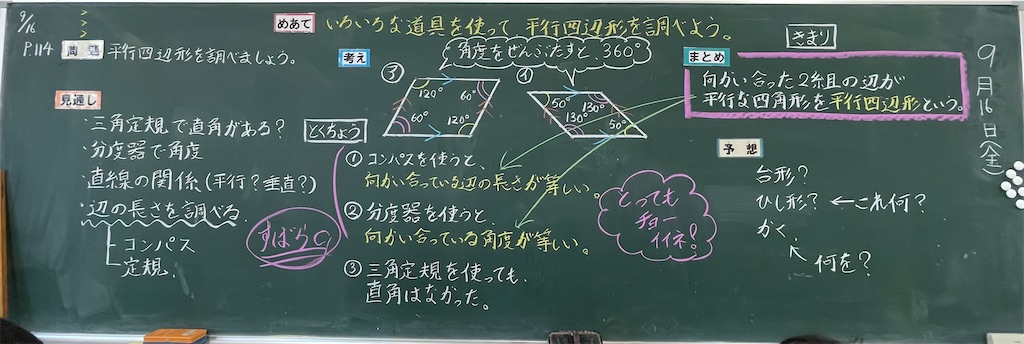 9/16
めあて いろいろな道具を使って平行四辺形を調べよう。
P.114 問題 平行四辺形を調べましょう。
見通し
・三角定規で直角がある?
・分度器で角度
・直線の関係(平行?垂直?)
・辺の長さを調べる
コンパス
定規
すばらC
考え
角度をぜんぶたすと、360°
③
120° 60°
60° 120°
④
50° 130°
130° 50°
とくちょう
①コンパスを使うと、
向かい合っている辺の長さが等しい。
②分度器を使うと、
向かい合っている角度が等しい。
③三角定規を使っても、
直角はなかった。
とっても
チョー
イイネ!
きまり
まとめ
向かい合った2組の辺が
平行な四角形を平行四辺形という。
予想
台形?
ひし形?←これ何?
かく、
何を?
9月16日(金)